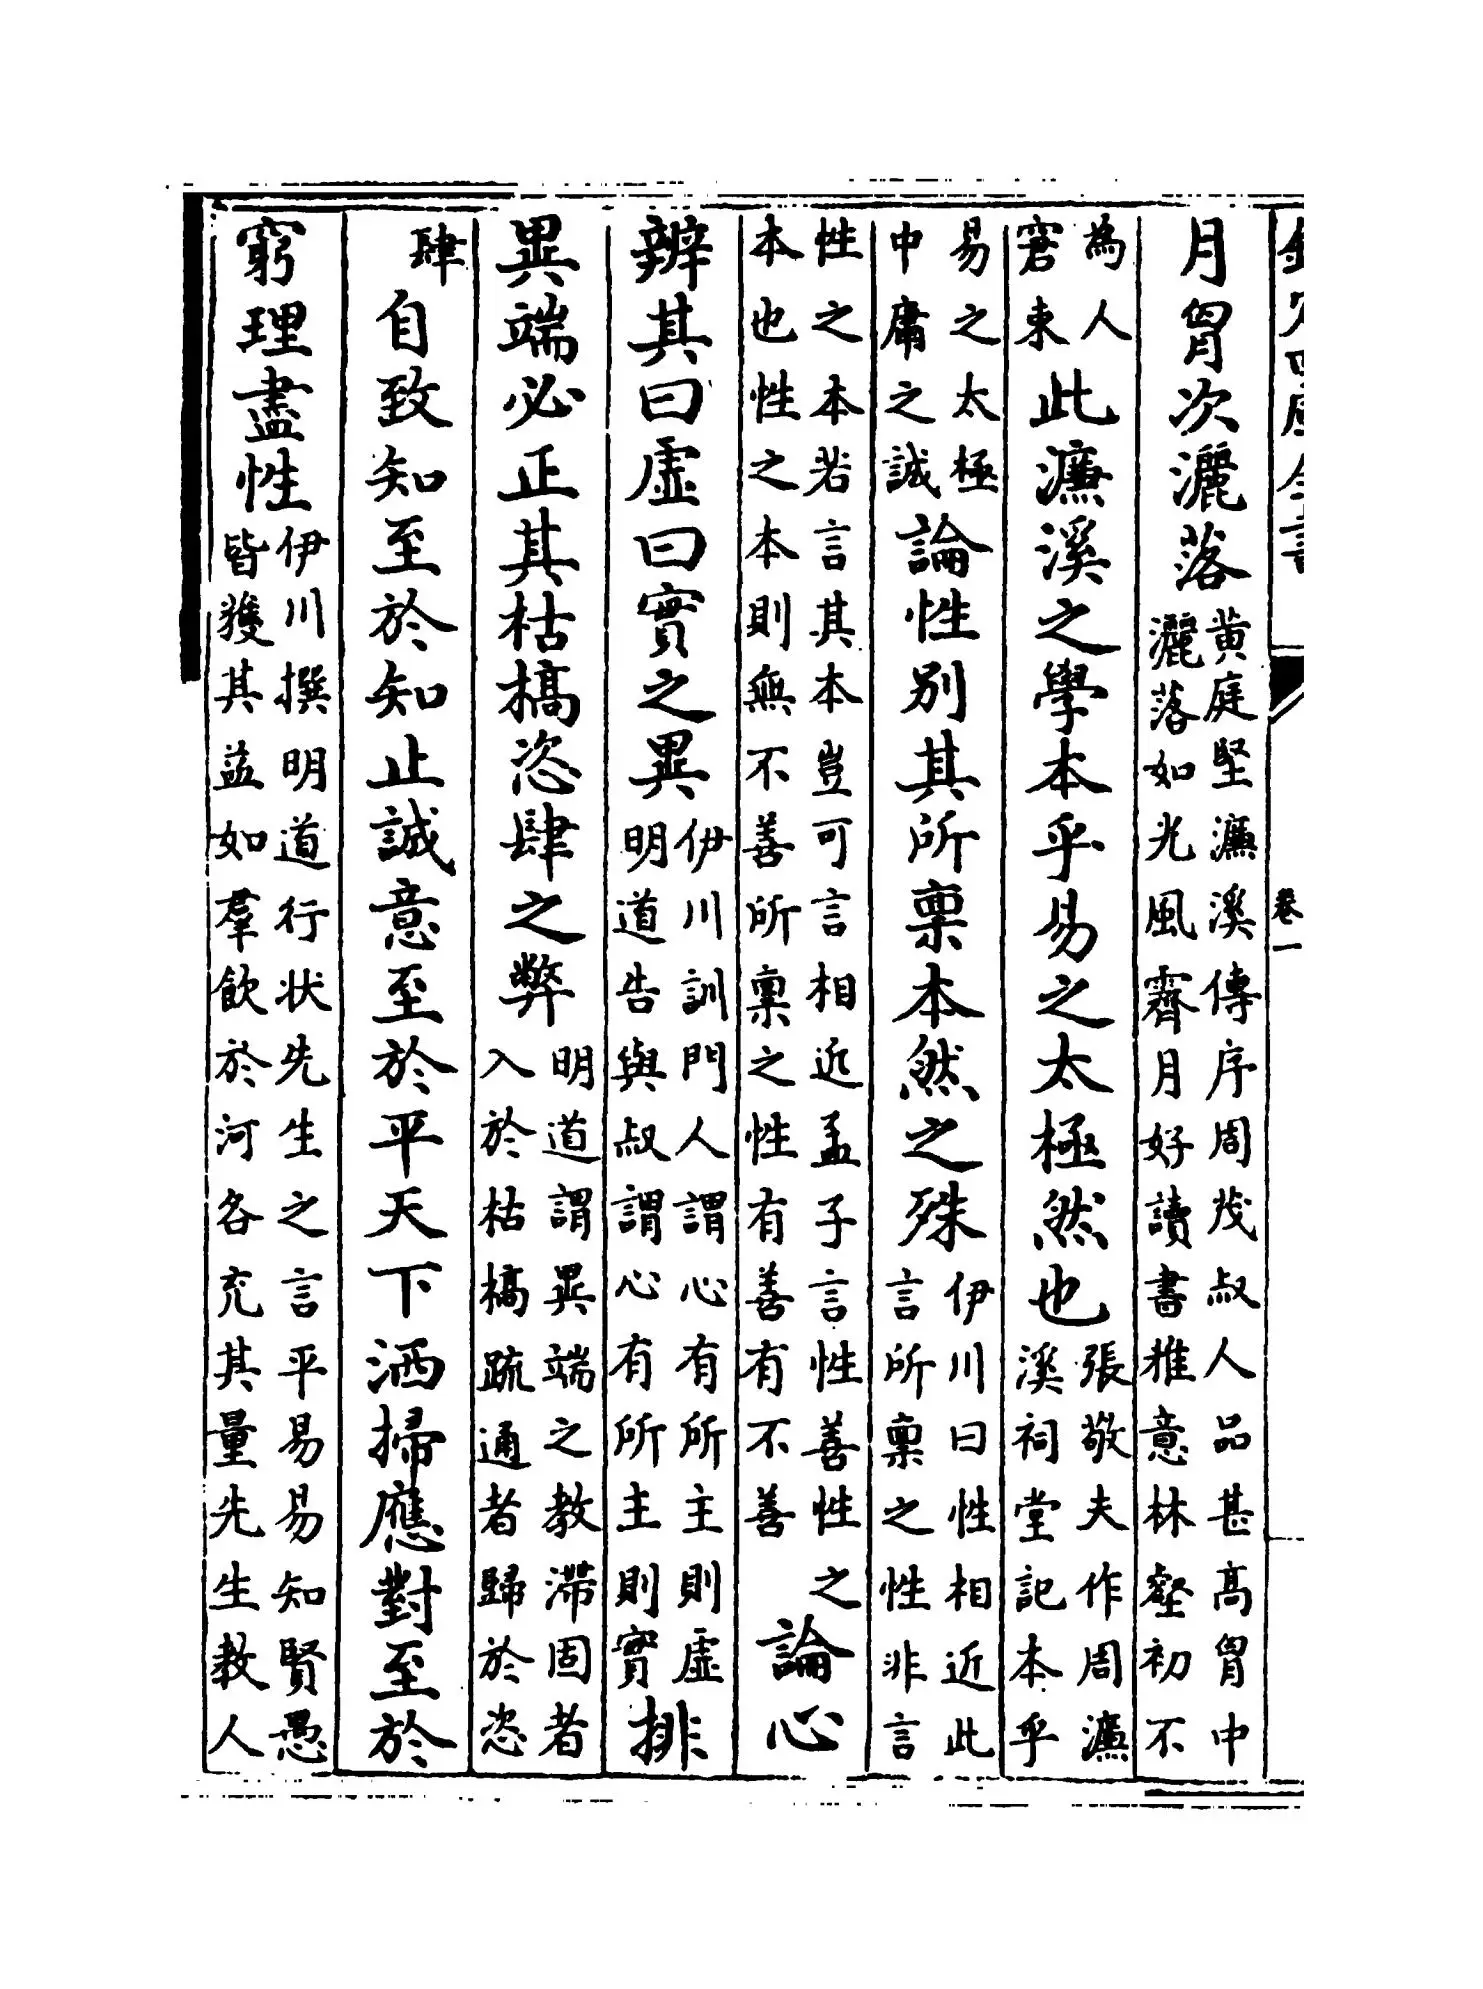 欽定四庫全書
卷一
月胷次灑落黄庭堅濂溪傳序周茂叔人品甚髙胷中灑落如光風霽月好讀書雅意林壑初不
為人窘束此濂溪之學本乎易之太極然也張敬夫作周濂溪祠堂記本乎
易之太極中庸之誠論性别其所禀本然之殊伊川曰性相近此言所禀之性非言
性之本若言其本豈可言相近孟子言性善性之本也性之本本則無不善所禀之性有善有不善論心
辨其曰虚曰實之異伊川訓門人謂心有所主則虚明道告與叔謂心有所主則實排
異端必正其枯槁恣肆之弊明道謂異端之教滯固者入於枯槁疏通者歸於恣
肆自致知至於知止誠意至於平天下洒掃應對至於
窮理盡性伊川撰明道行状先生之言平易易知賢愚皆獲其益如羣飲於河各充其量先生教人